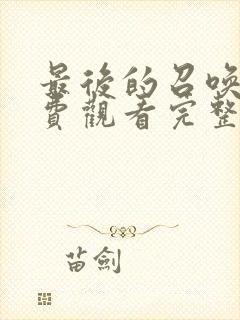 最後的召喚
費觀看完整
苗劍